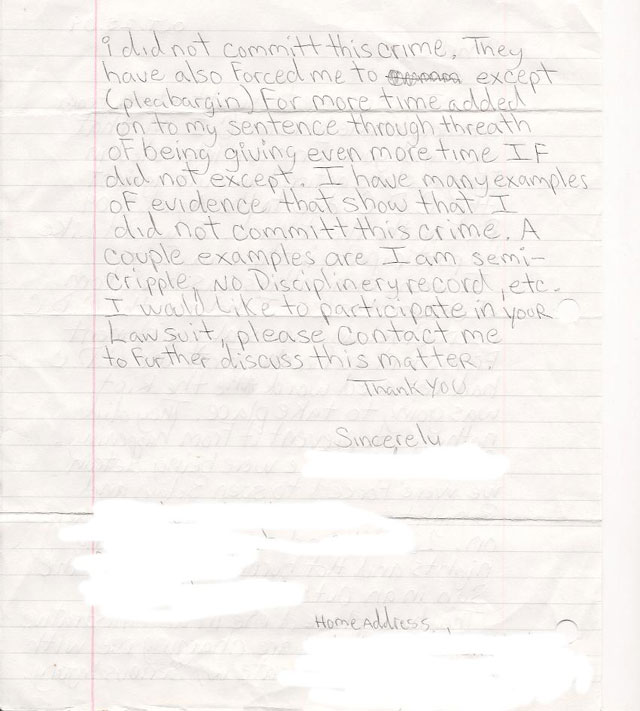 i did not committ this crime. They
have also Forced me to except
(pleabargin) For more time added
on to my sentence through threath
of being giving even more time IF
did not except. I have many examples
of evidence that show that I
did not committ this crime. A
couple examples are I am semi-
cripple, no Disciplinery record, etc.
I would like to participate in your
Lawsuit, please Contact me
to further discuss this matter.
Thank you
Sincerely
Home Address,